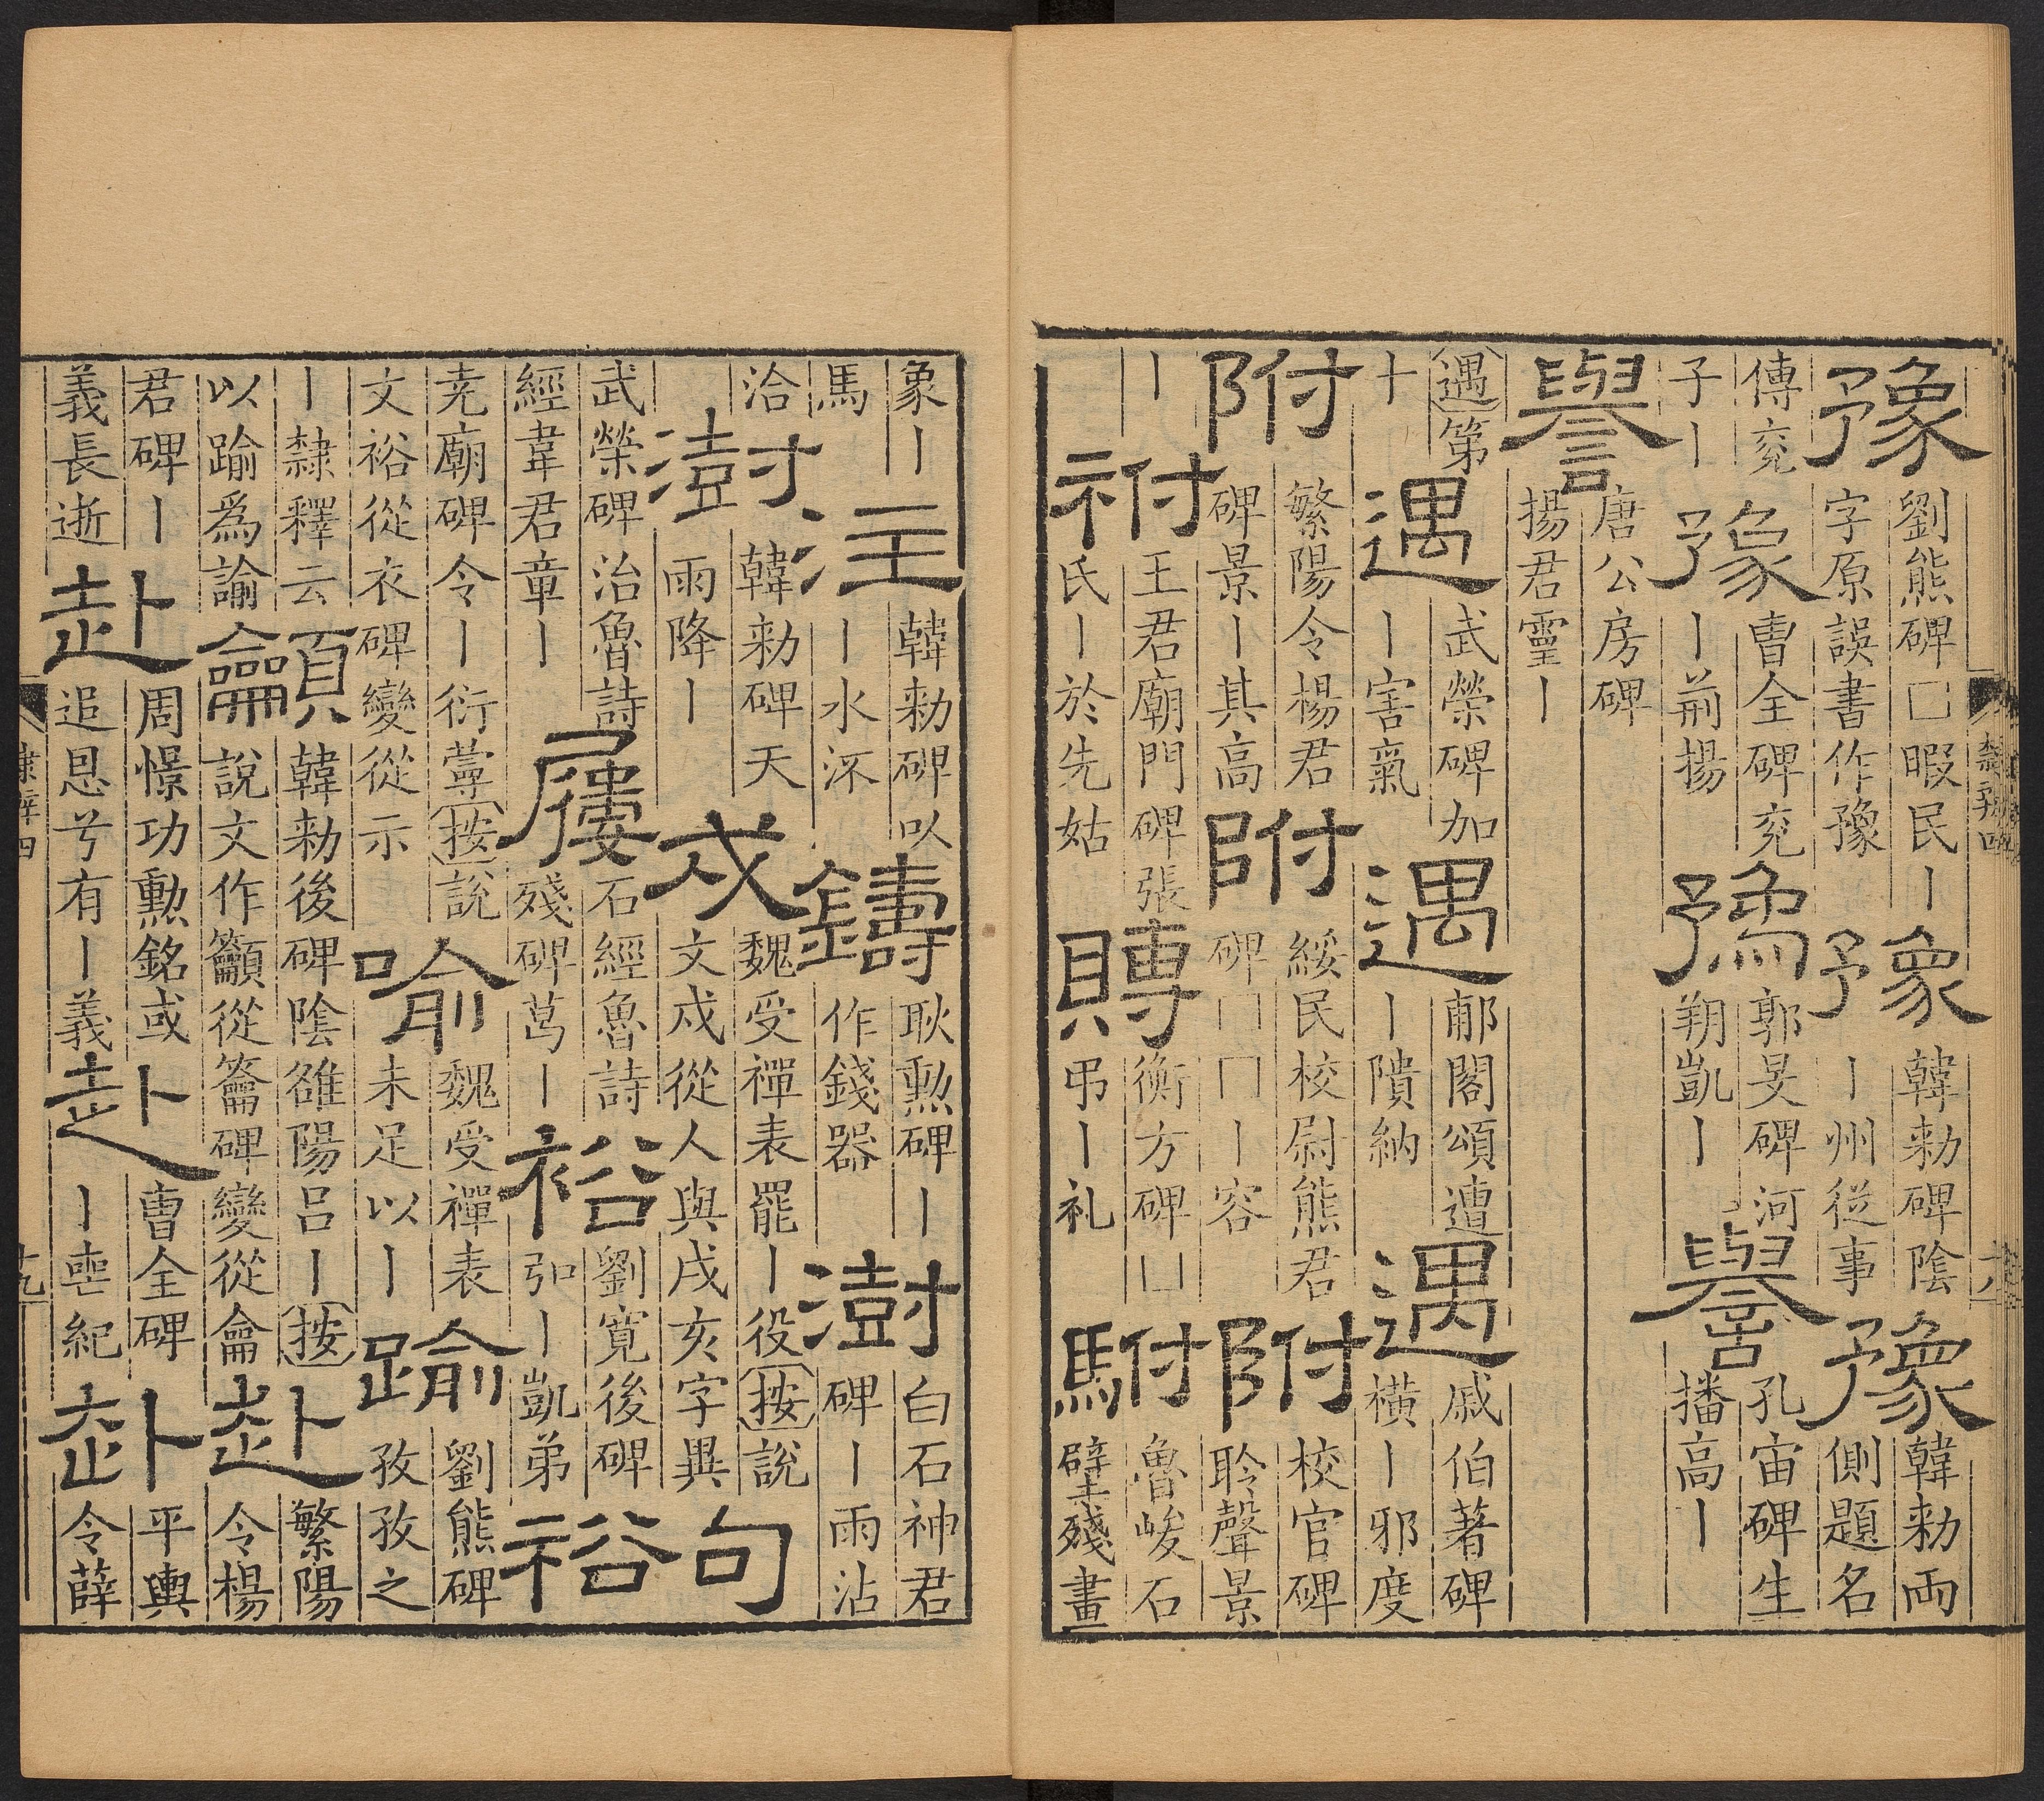 豫劉熊碑□暇民丨字原誤書作豫豫韓勑碑陰丨州從事豫韓勑兩側題名
傳兖子丨豫曹全碑兖丨荊揚豫郭旻碑河朔凱丨譽孔宙碑生播高丨
譽唐公房碑揚君靈丨
遇第十遇武榮碑加丨害氣遇郙閣頌遭丨隤納遇戚伯著碑橫丨邪度
附繁陽令楊君碑景丨其高附綏民校尉熊君碑□□丨容附校官碑聆聲景
丨祔王君廟門碑張氏丨於先姑賻衡方碑□弔丨礼駙魯峻石壁殘畫
象丨馬注韓勑碑以丨水沠鑄耿勲碑丨作錢器澍白石神君碑丨雨沾
洽澍韓勑碑天雨降丨戍魏受禪表罷丨役按說文戍從人與戌亥字異句
武榮碑治魯詩經韋君章丨屨石經魯詩殘碑葛丨裕劉寬後碑弘丨凱弟裕
尭廟碑令丨衍䔭按說文裕從衣碑變從示喻魏受禪表未足以丨踰劉熊碑孜孜之
丨隸釋云以踰爲諭龥韓勑後碑陰雒陽呂丨按說文作籲從籥碑變從龠赴繁陽令楊
君碑丨義長逝赴周憬功勲銘或追恩兮有丨義赴曹全碑丨喪紀赴平輿令薛
隸辨四
十九